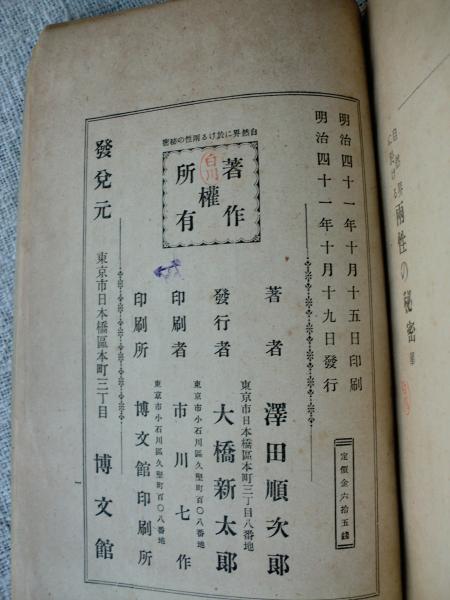 自然界に於ける兩性の秘密
終
明治四十一年十月十五日印刷
明治四十一年十月十九日發行
定價金六拾五錢
自然界に於ける兩性の秘密
著作
權
所有
白川
著者 澤田順次郎
東京市日本橋區本町三丁目八番地
發行者 大橋新太郎
東京市小石川區久堅町百〇八番地
印刷者 市川七作
東京市小石川區久堅町百〇八番地
印刷所 博文館印刷所
發兌元 東京市日本橋區本町三丁目 博文館